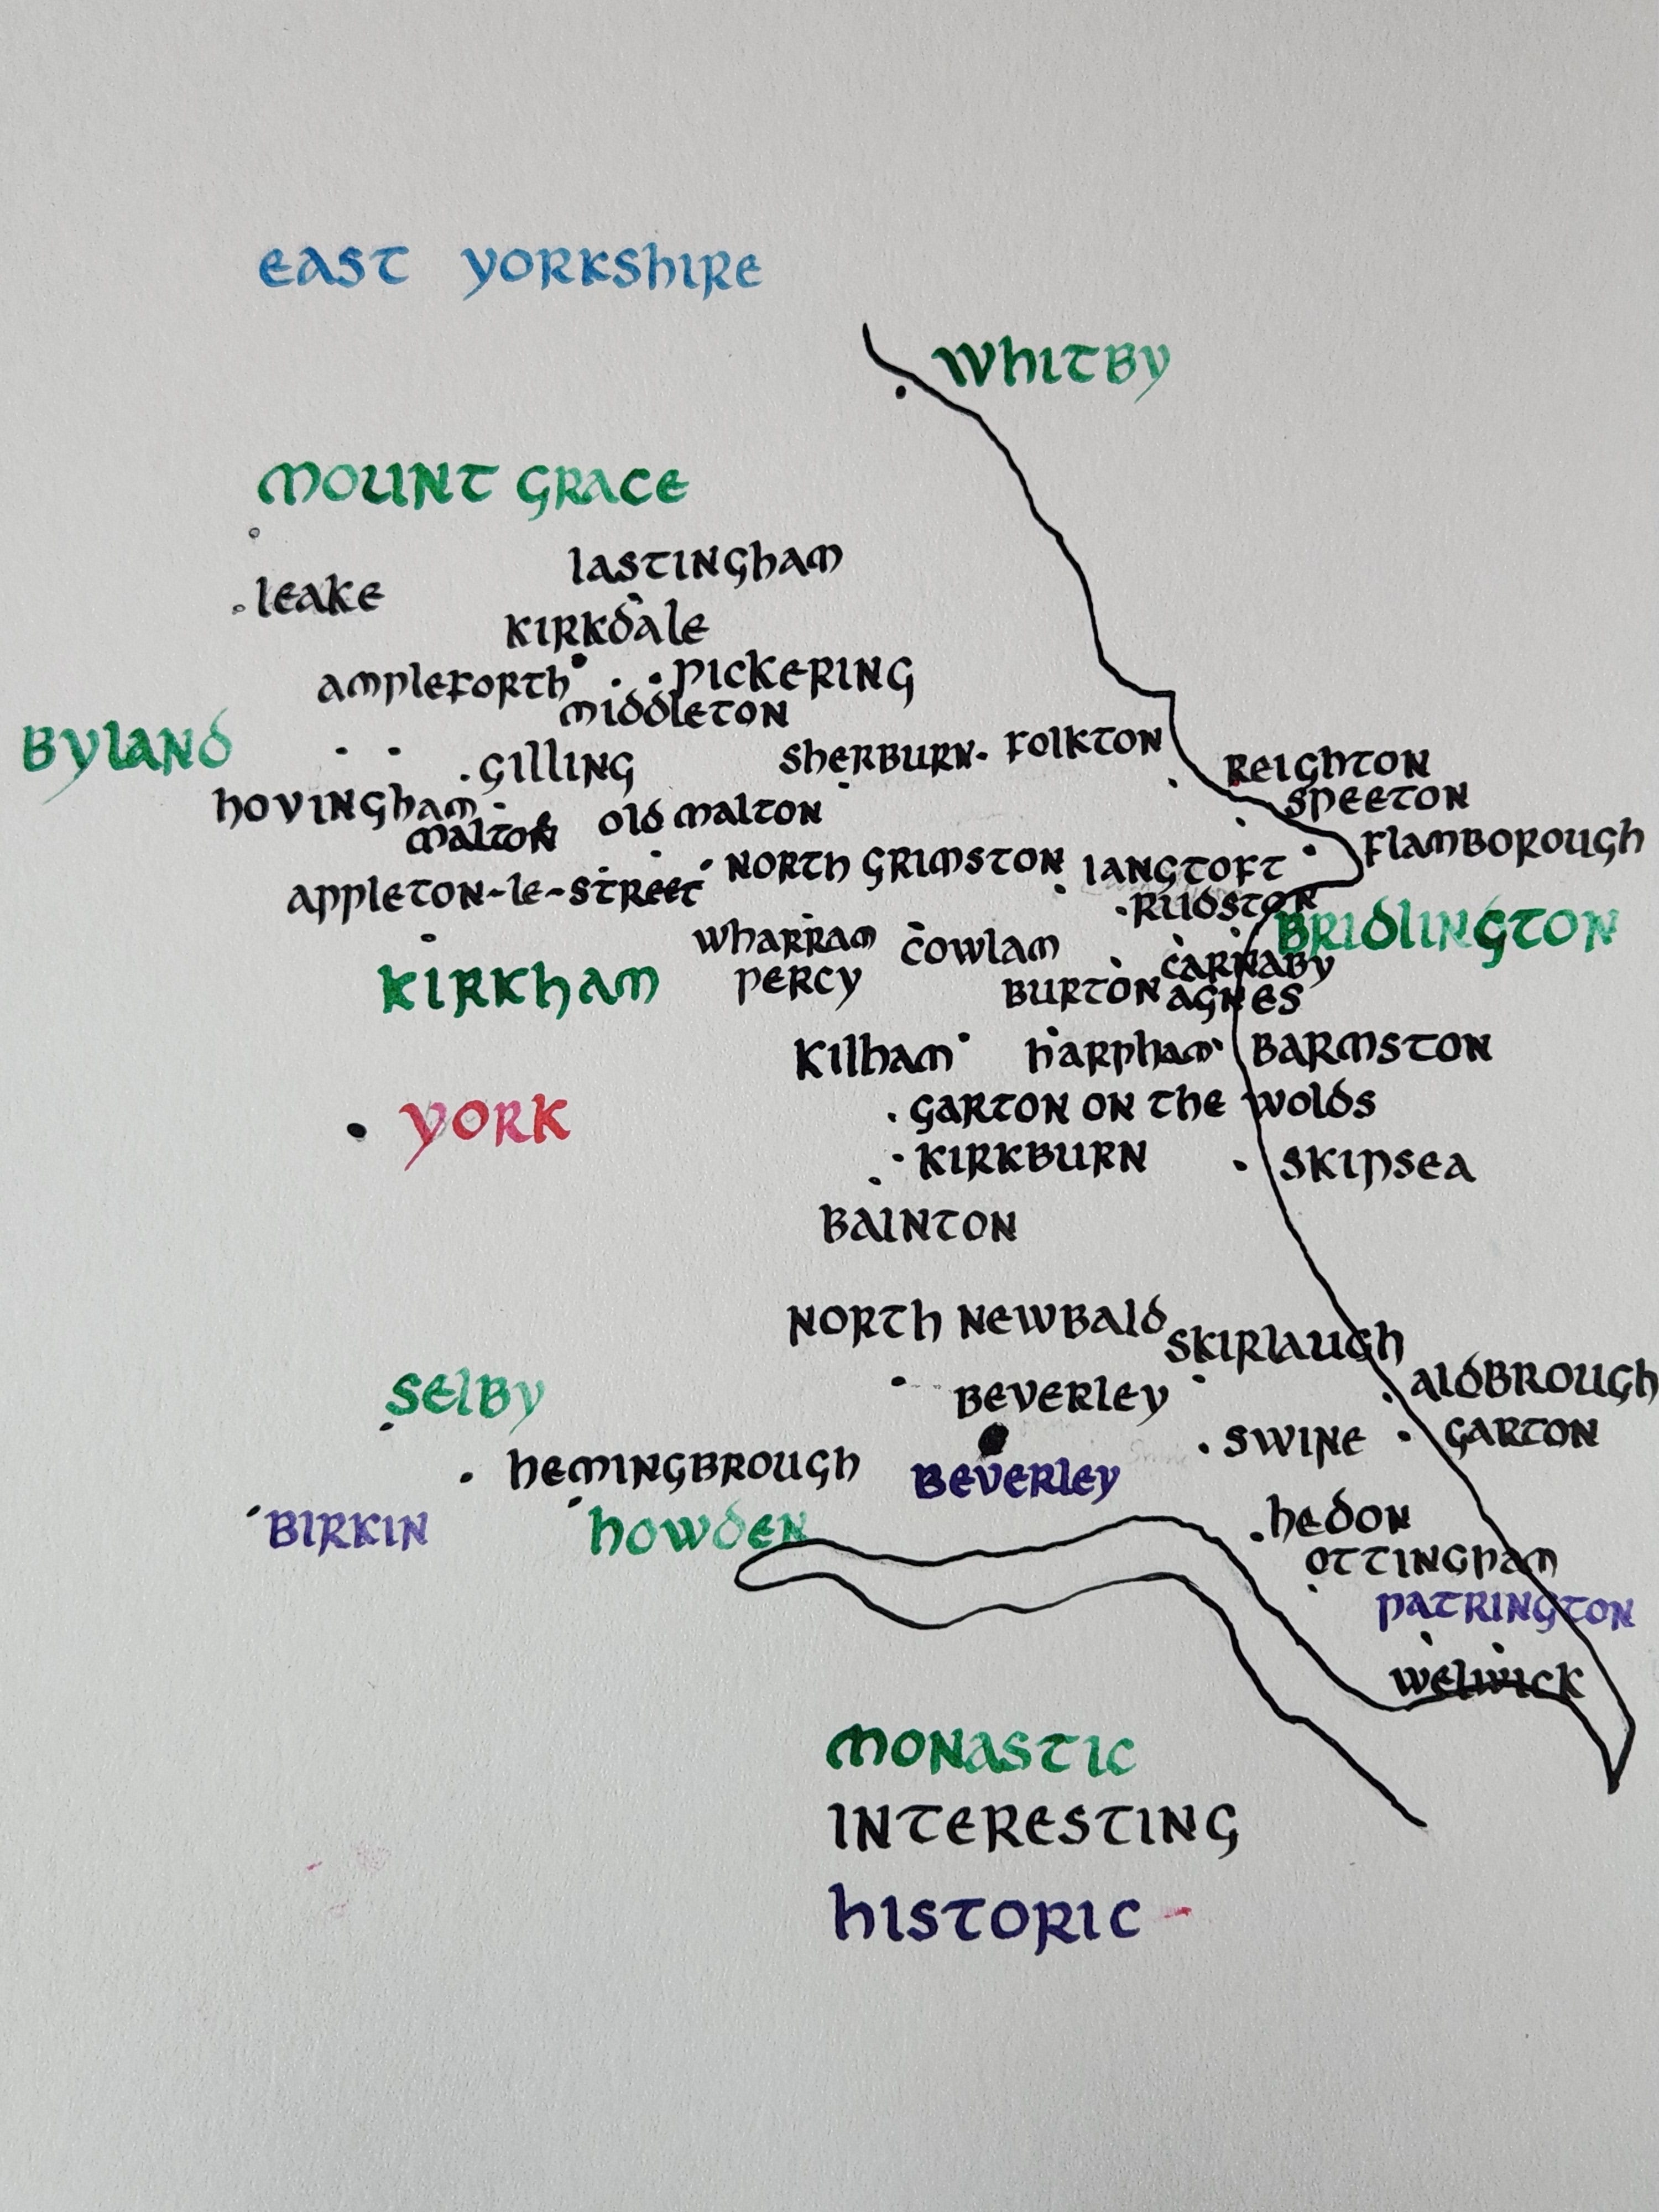 EAST YORKSHIRE
WHITBY
MOUNT GRACE
LASTINGHAM
LEAKE
KIRKDALE
AMPLEFORTH
PICKERING
MIDDLETON
BYLAND
GILLING
SHERBURN
FOLKTON
REIGHTON
SPEETON
HOVINGHAM
MALTON
OLD MALTON
FLAMBOROUGH
NORTH GRIMSTON
LANGTOFT
APPLETON-LE-STREET
RUDSTON
BRIDLINGTON
WHARRAM
PERCY
COWLAM
CARNABY
KIRKHAM
BURTON AGNES
KILHAM
HARPHAM
BARMSTON
YORK
GARTON ON THE WOLDS
KIRKBURN
SKIPSEA
BAINTON
NORTH NEWBALD
SKIRLAUGH
SELBY
BEVERLEY
ALDBROUGH
SWINE
GARTON
HEMINGBROUGH
BEVERLEY
BIRKIN
HOWDEN
HEDON
OTTINGHAM
PATRINGTON
WELWICK
MONASTIC
INTERESTING
HISTORIC